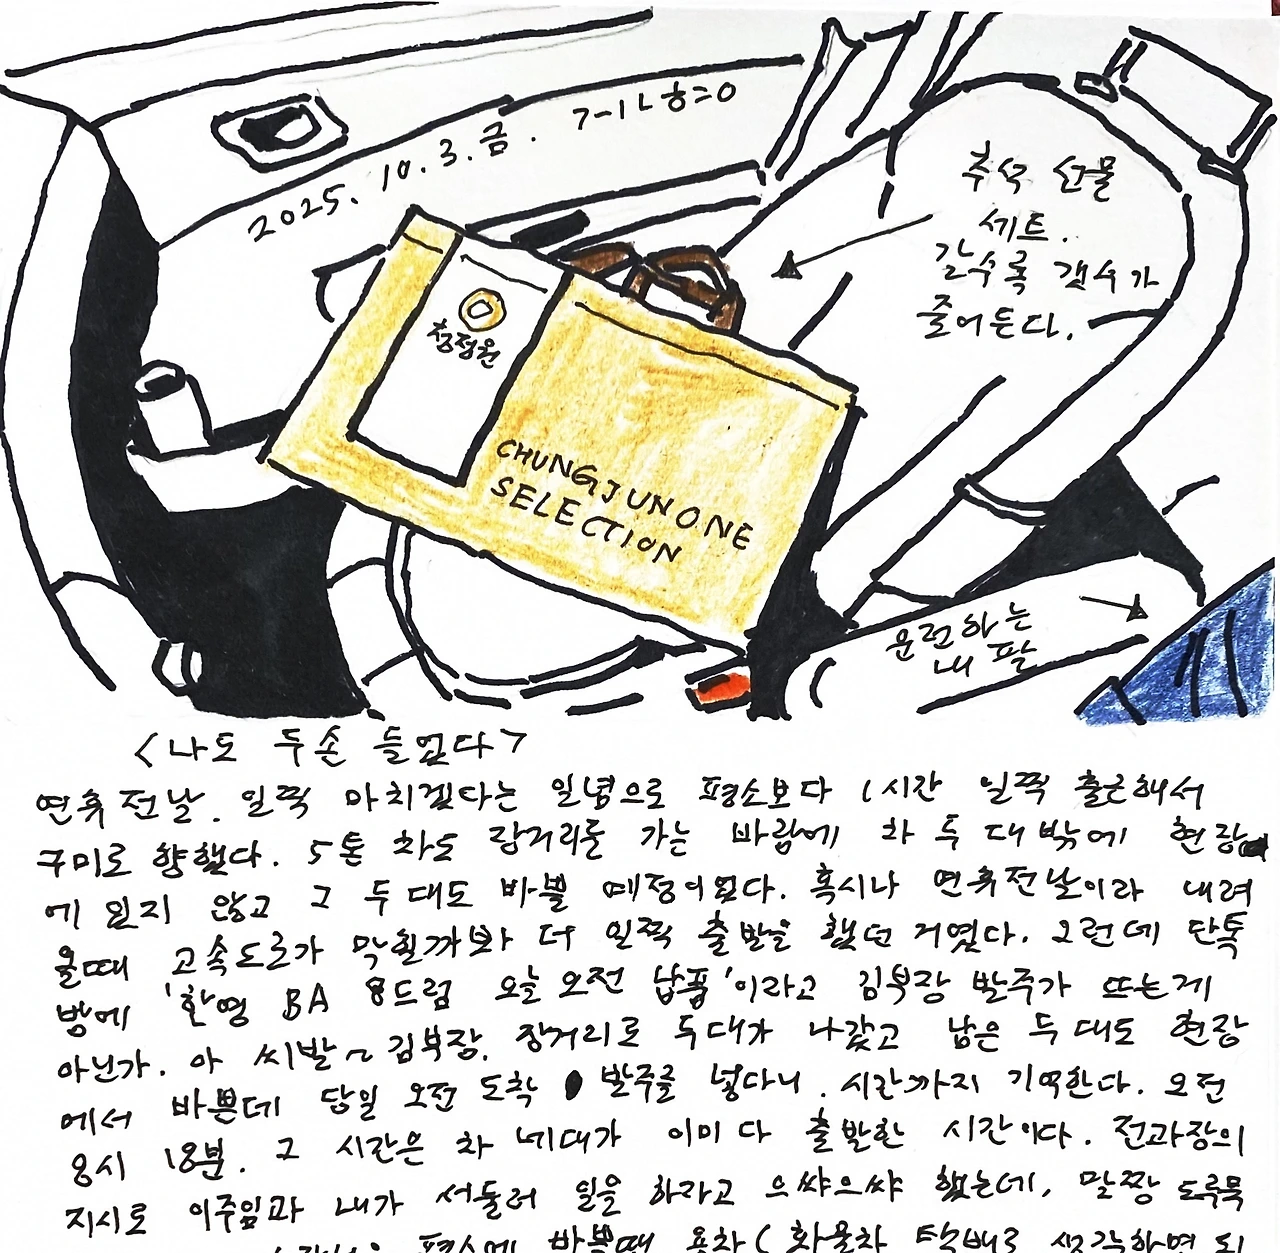 2025. 10. 3. 금.
추석 선물
세트.
갈수록 갯수가
줄어든다.
청정원
CHUNGJUNONE
SELECTION
운전하는
내 팔
<나도 두손 들었다>
연휴 전날. 일찍 마치겠다는 일념으로 평소보다 1시간 일찍 출근해서
구미로 향했다. 5톤 차도 장거리를 가는 바람에 차 두 대밖에 현장
에 있지 않고 그 두 대도 바쁠 예정이었다. 혹시나 연휴전날이라 내려
올때 고속도로가 막힐까봐 더 일찍 출발을 했던 거였다. 그런데 단톡
방에 '한영 BA 8드럼 오늘 오전 납품'이라고 김부장 발주가 뜨는게
아닌가. 아 씨발~ 김부장. 장거리로 두대가 나갔고 남은 두 대도 현장
에서 바쁜데 당일 오전 도착 발주를 넣다니. 시간까지 기억한다. 오전
8시 18분. 그 시간은 차 네대가 이미 다 출발한 시간이다. 전과장의
지시로 이주임과 내가 서둘러 일을 하자고 으쌰으쌰 했는데, 말짱 도루묵
평소에 바쁠때 용차(화물차 택배로 생각하면 되